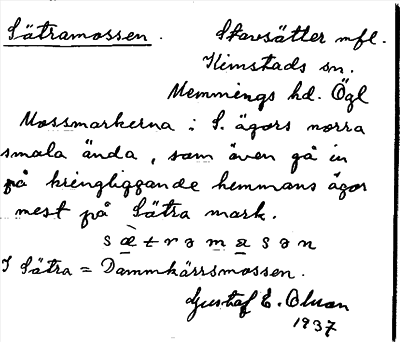 Sätramossen. Skavsätter mfl.
Kimstads sn.
Memmings hd. Ögl
Mossmarkerna i S. ägors norra
smala ända, som även gå in
på kringliggande hemmans ägor
mest på Sätra mark.
s æ̀ t r ə m a s ə n
I Sätra = Dammkärrsmossen.
Gustaf E. Olson
1937